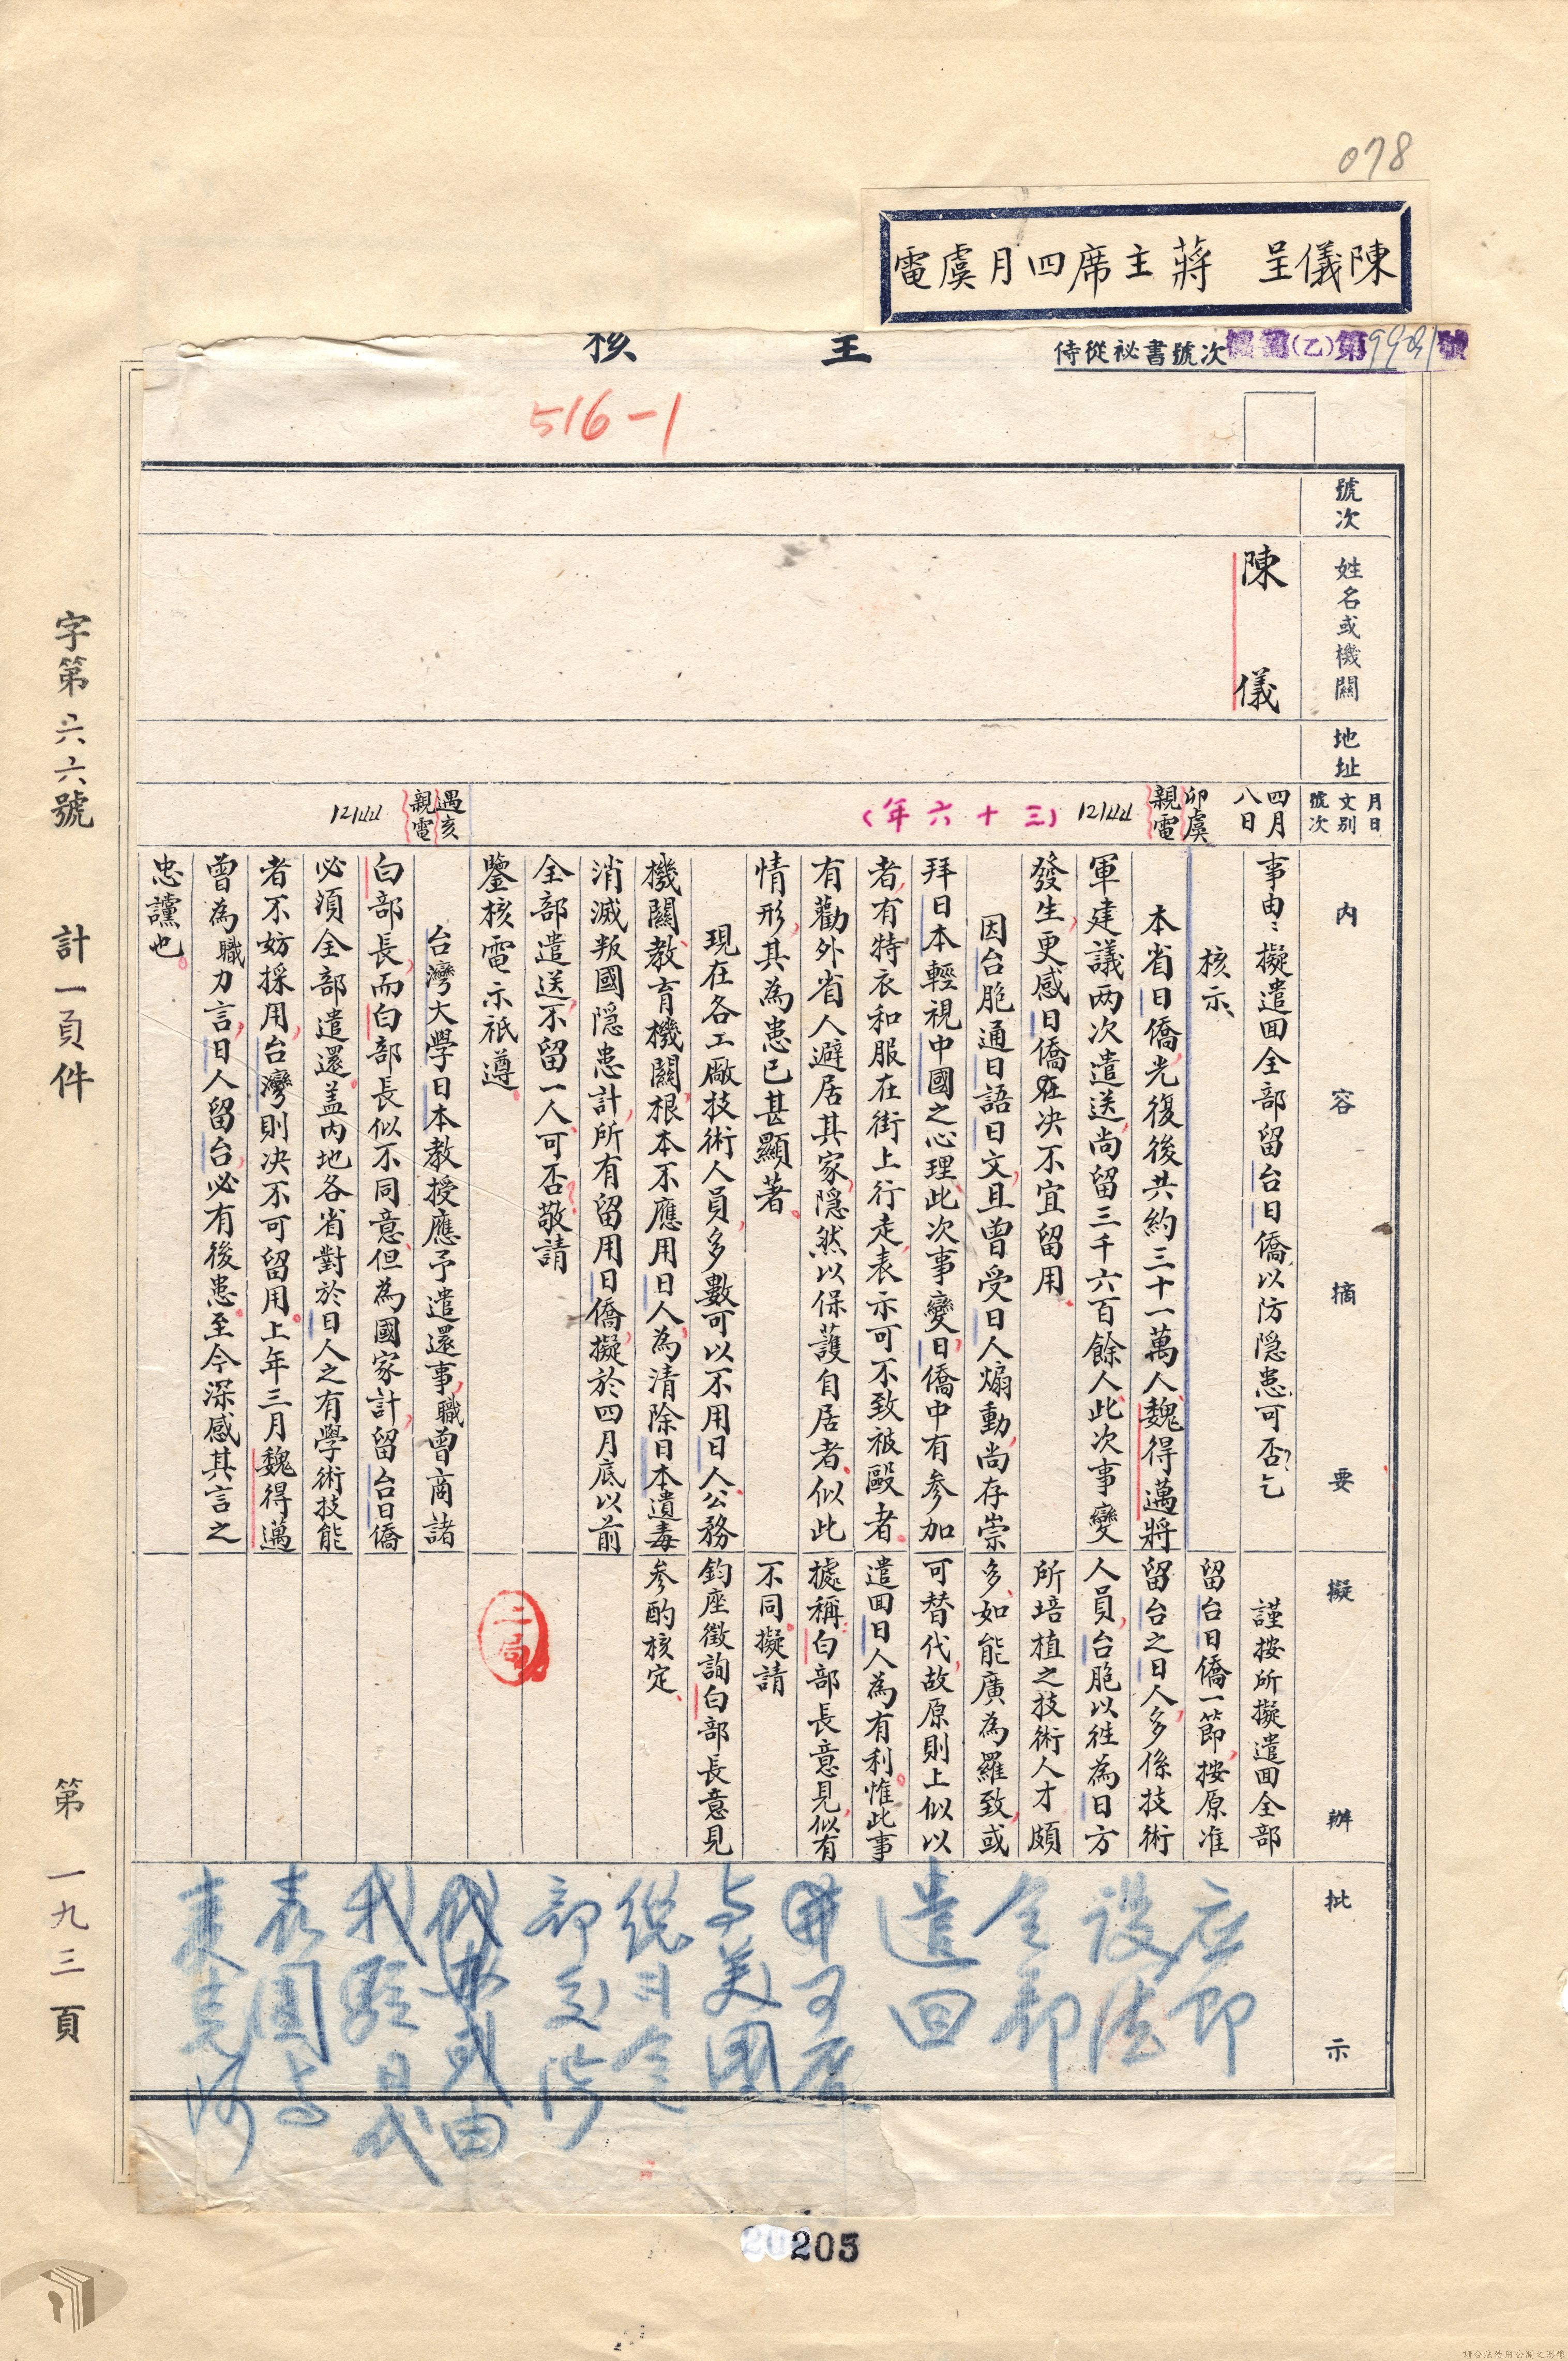 078
陳儀呈　蔣主席四月虞電
呈　核
侍從祕書號次
(乙)第
號
516-1
號次
姓名或機關
地址
月日
文別
號次
內容摘要
擬辦
批示
陳儀
四月
八日
卯虞
親電
(三十六年)
遇亥
親電
事由：擬遣回全部留台日僑以防隱患可否？乞
核示、
本省日僑，光復後共約三十一萬人，魏得邁將
軍建議两次遣送，尚留三千六百餘人，此次事變
發生，更感日僑在決不宜留用。
因台胞通日語日文，且曾受日人煽動，尚存崇
拜日本輕視中國之心理，此次事變，日僑中有參加
者，有特衣和服在街上行走，表示可不致被毆者。
有勸外省人避居其家，隱然以保護自居者，似此
情形，其為患已甚顯著。
現在各工廠技術人員，多數可以不用日人，公務
機關、教育機關，根本不應用日人，為清除日本遺毒
消滅叛國隱患計，所有留用日僑，擬於四月底以前
全部遣送，不留一人，可否？敬請
鑒核電示祇遵。
台灣大學日本教授應予遣還事，職曾商諸
白部長，而白部長似不同意，但為國家計，留台日僑
必須全部遣還。盖內地各省對於日人之有學術技能
者不妨採用，台灣則決不可留用。上年三月魏得邁
曾為職力言，日人留台，必有後患。至今深感其言之
忠讜也。
謹按所擬遣回全部
留台日僑一節，按原准
留台之日人，多係技術
人員，台胞以往為日方
所培植之技術人才頗
多，如能廣為羅致，或
可替代，故原則上似以
遣回日人為有利。惟此事
據稱：白部長意見，似有
不同，擬請
鈞座徵詢白部長意見
參酌核定、
二局
应即
設法
全部
遣回
并可在
与美国
總司令
部交涉
或由
我駐日代
表團与
麦克阿
字第六六號
計一頁件
第一九三頁
205
請合法使用公開之影像